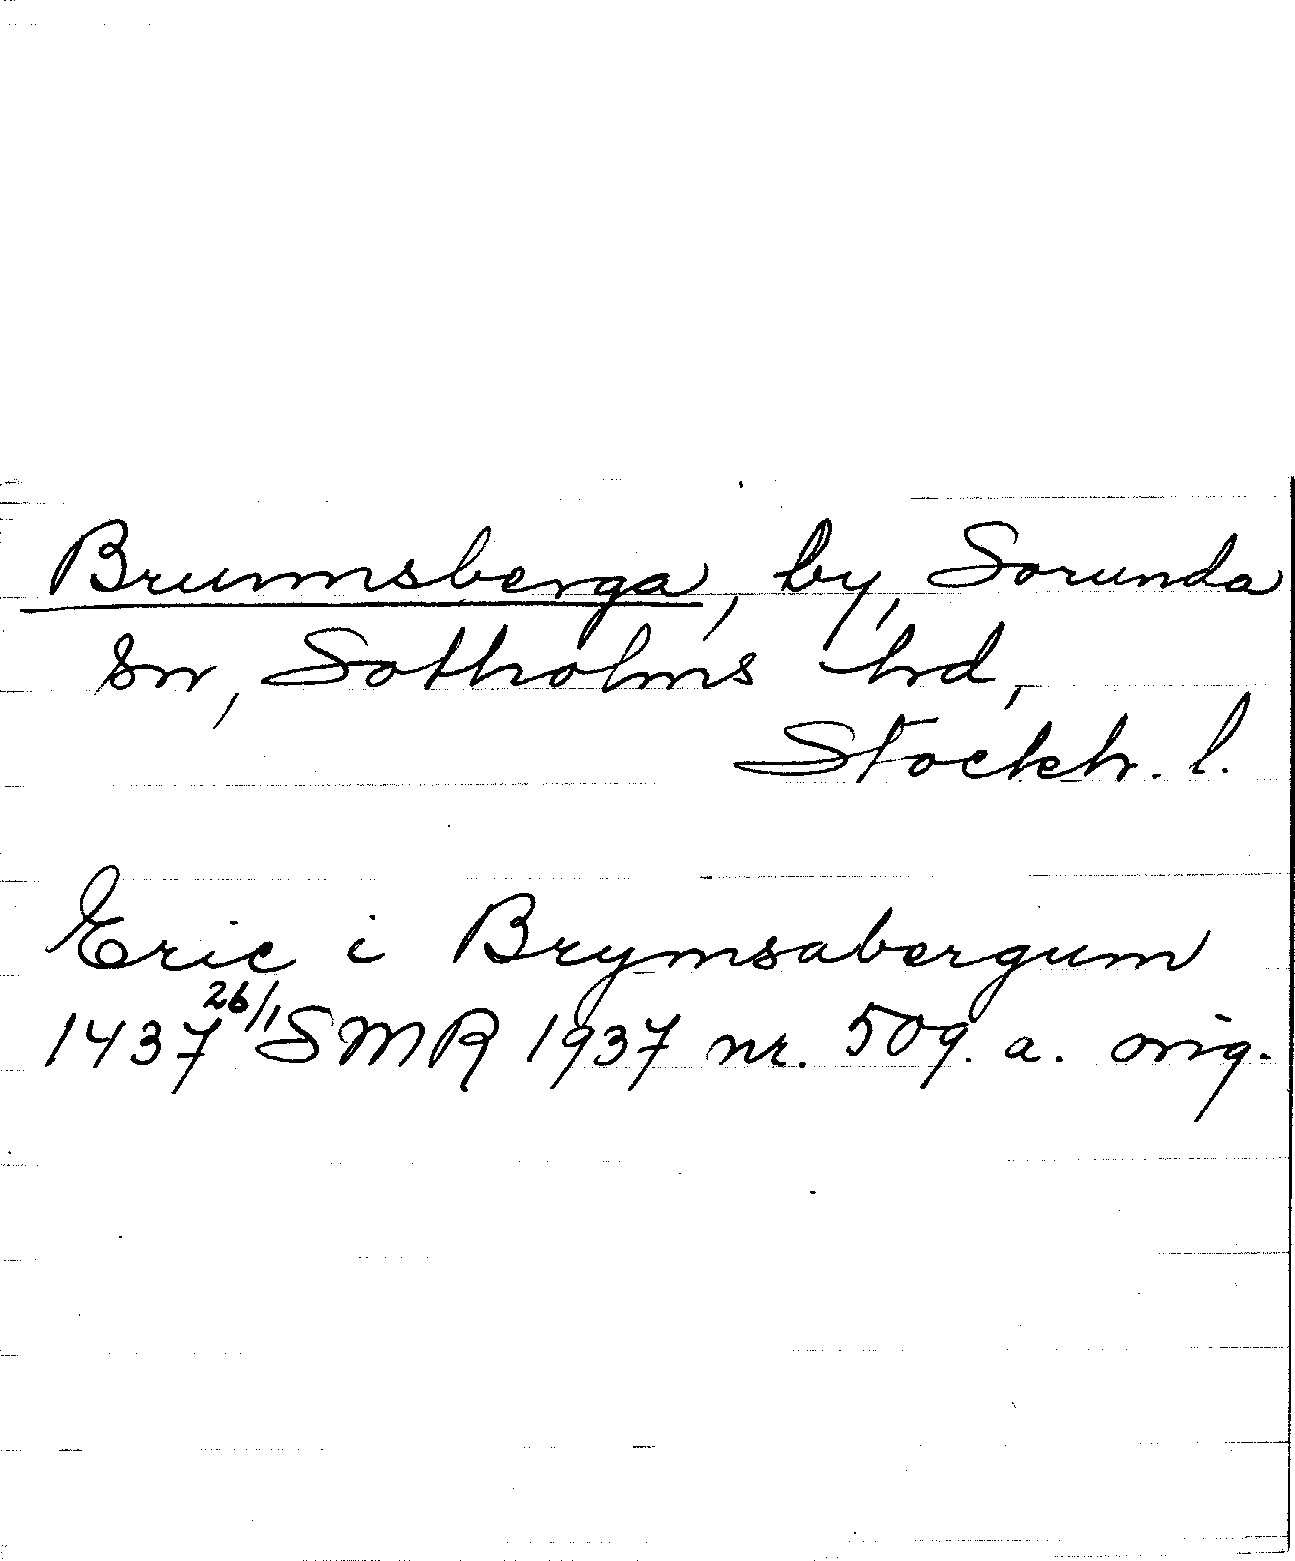 Brumsberga, by, Sorunda
sn, Sotholms hd,
Stockh. l.
Eric i Brymsabergum
1437 26/1 SMR 1937 nr. 509. a. orig.